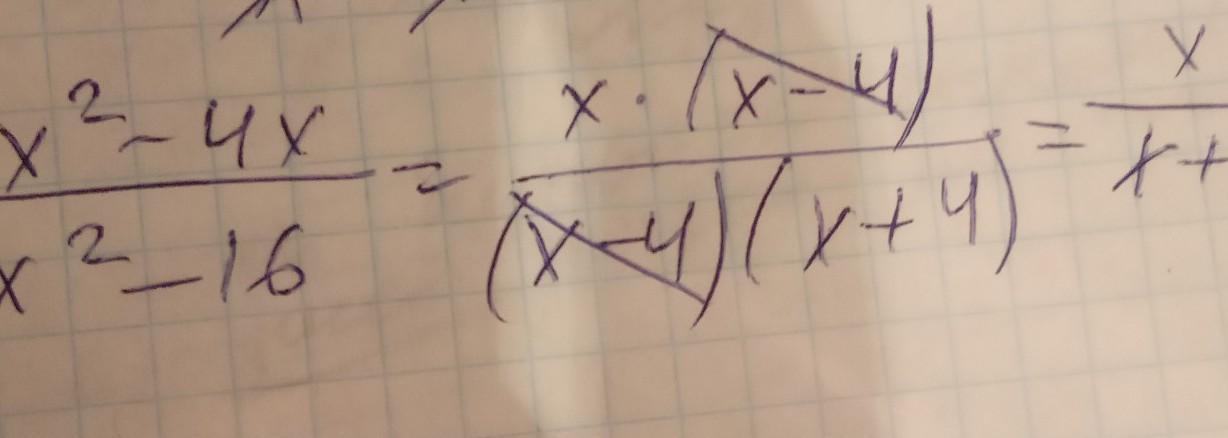 x² - 4x / x² - 16 = x · (x - 4) / (x - 4)(x + 4) = x / x +